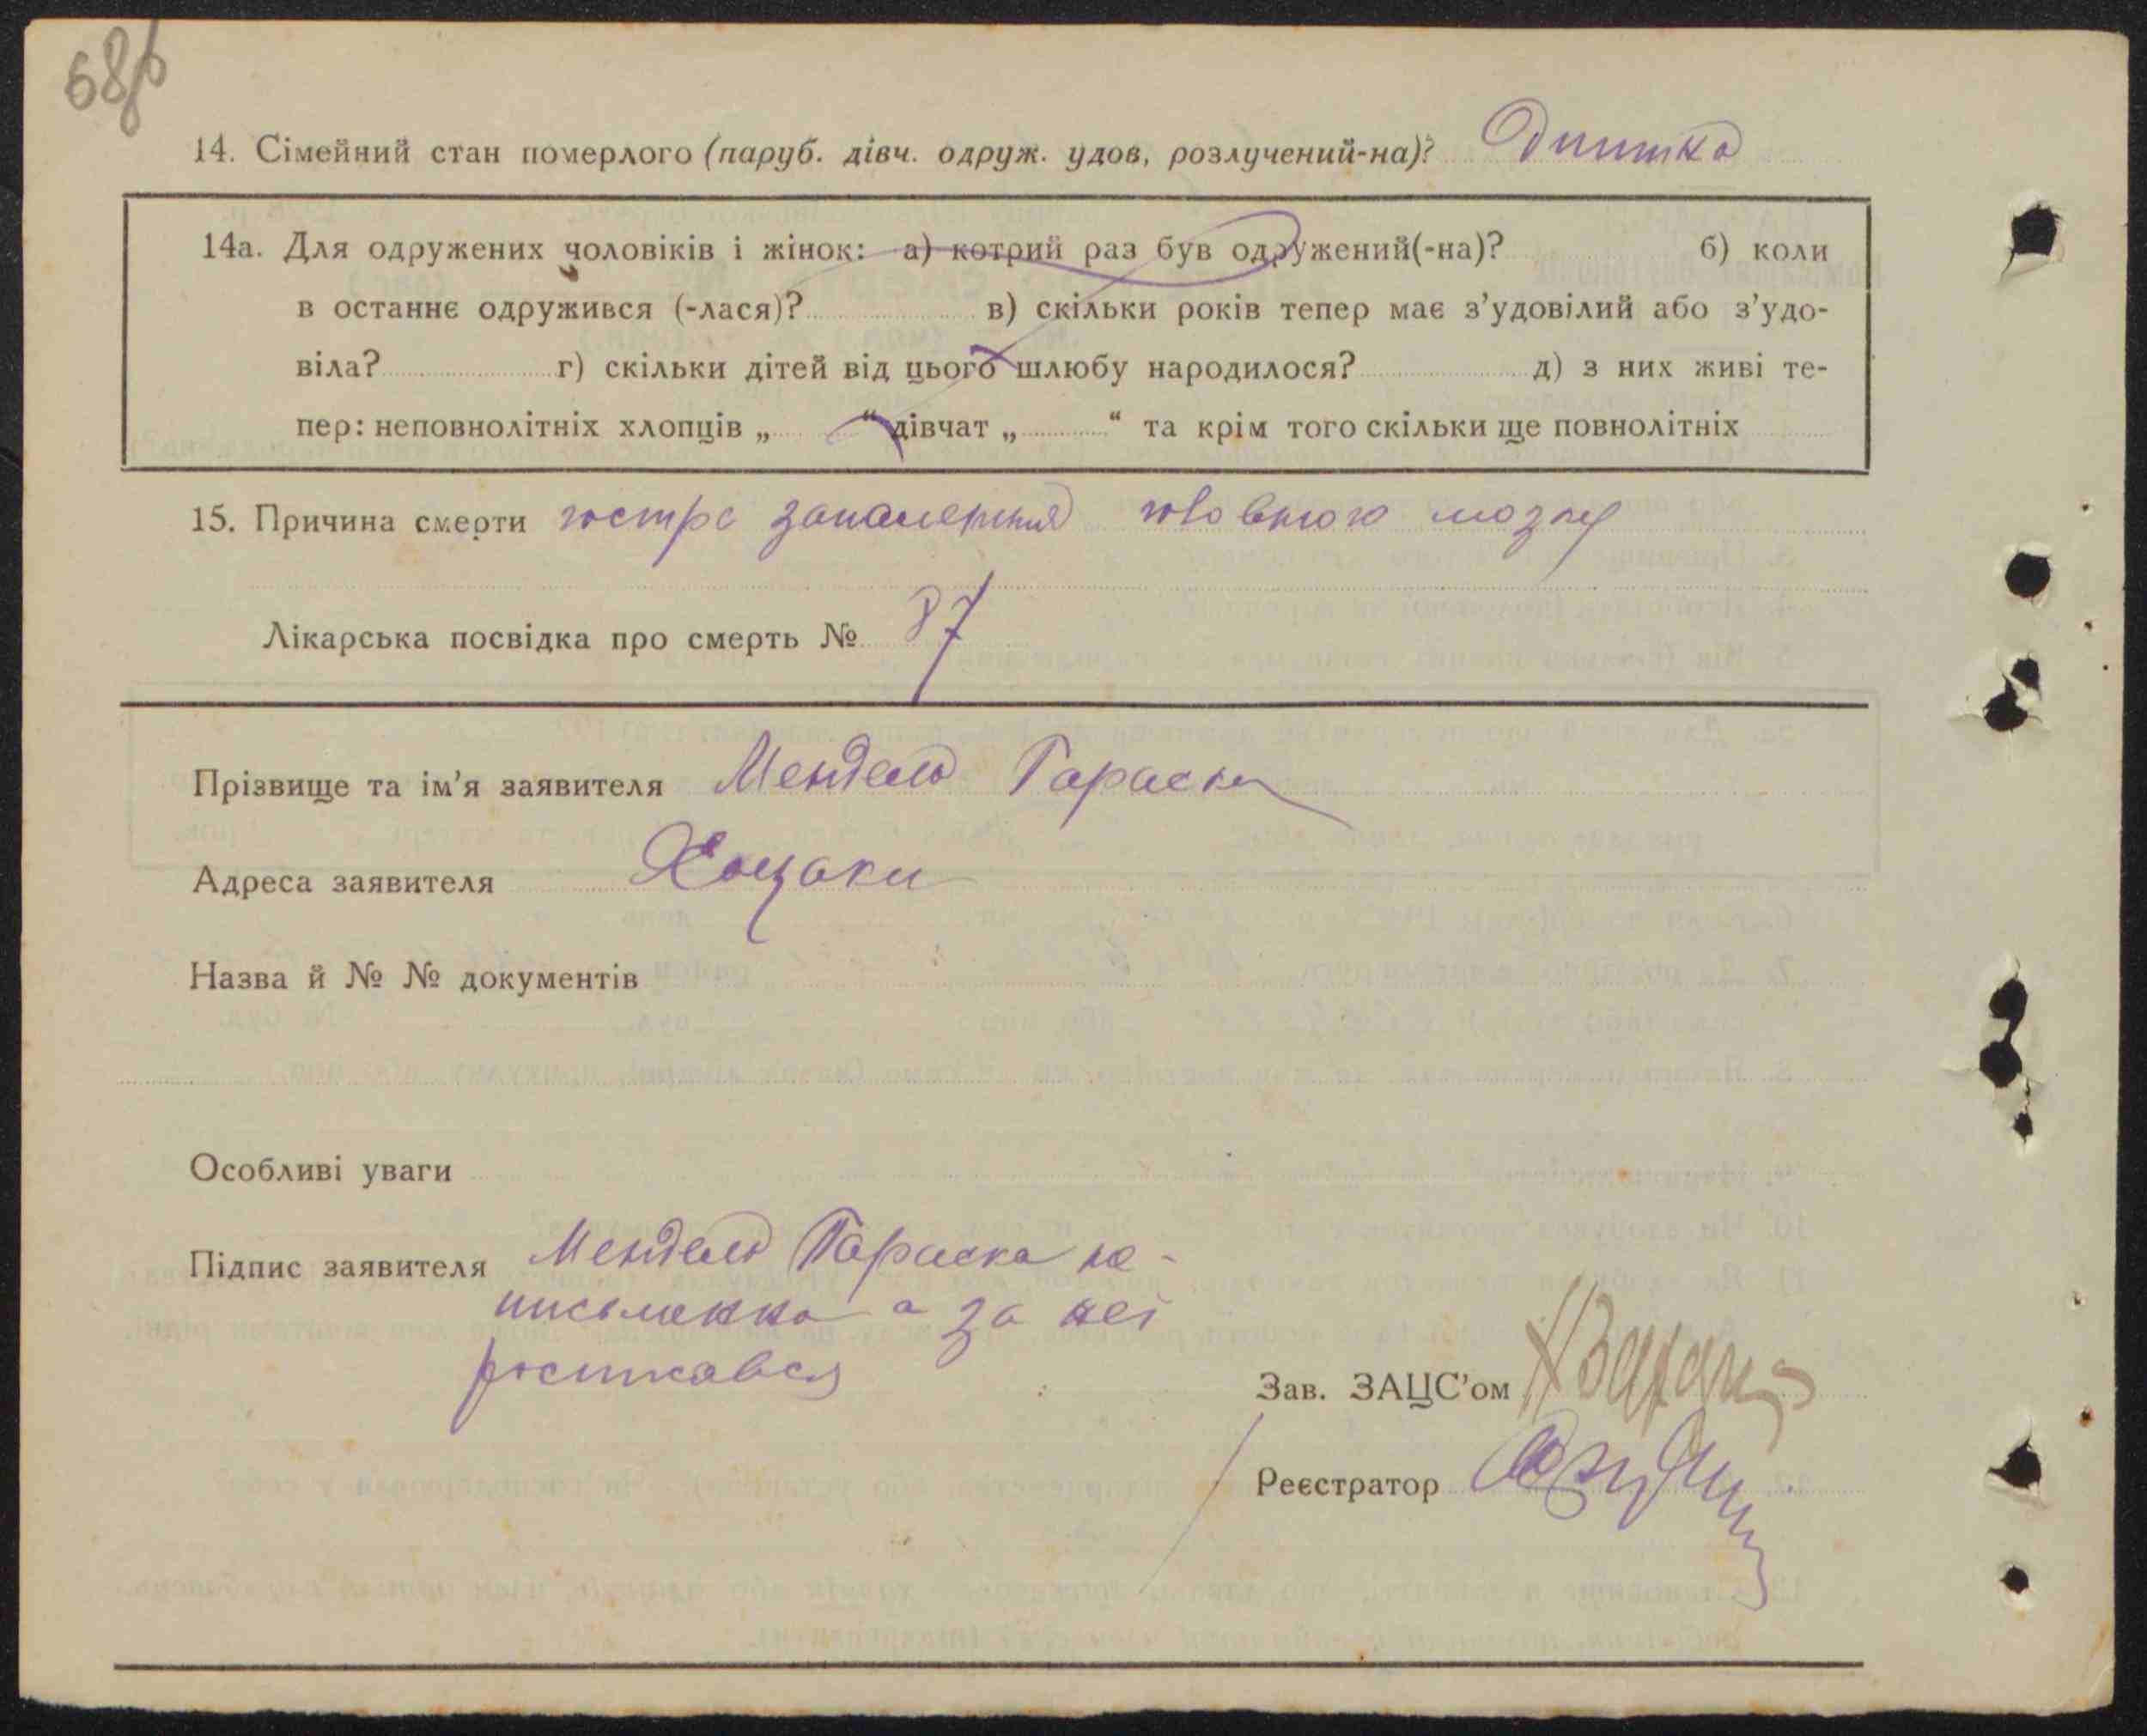 68б
14. Сімейний стан померлого (паруб. дівч. одруж. удов, розлучений-на)? Дитина
14а. Для одружених чоловіків і жінок: а) котрий раз був одружений(-на)? б) коли
в останнє одружився (-лася)? в) скільки років тепер має з’удовілий або з’удо-
віла? г) скільки дітей від цього шлюбу народилося? д) з них живі те-
пер: неповнолітніх хлопців „ “ дівчат „ “ та крім того скільки ще повнолітніх
15. Причина смерти гостре запалення головного мозку
Лікарська посвідка про смерть № 87
Прізвище та ім’я заявителя Мендель
Адреса заявителя Хоцаки
Назва й № № документів
Особливі уваги
Підпис заявителя Мендель не-
письменна а за неї
росписався
Зав. ЗАЦС’ом
Реєстратор